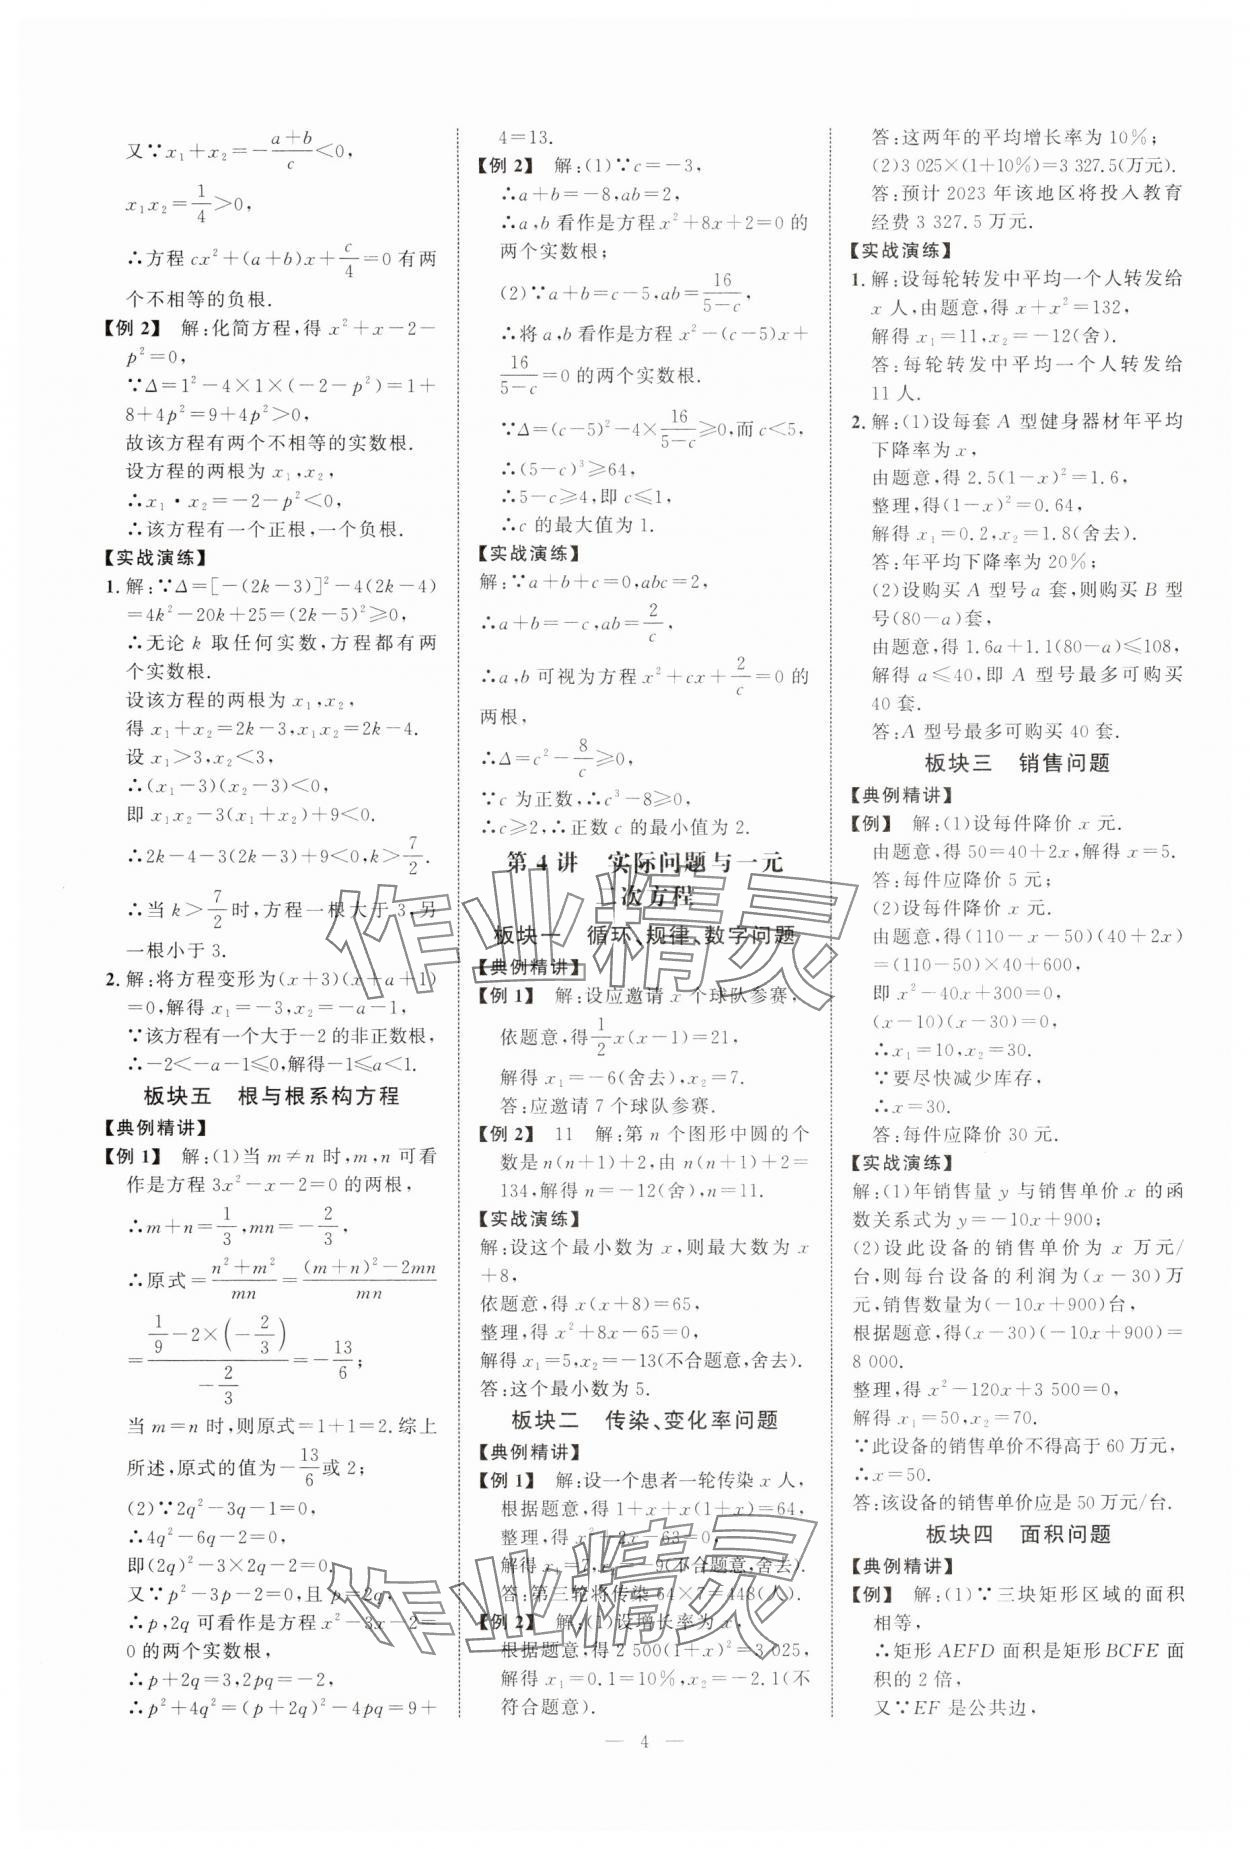 又∵x₁+x₂=-(a+b)/c<0,
x₁x₂=1/4>0,
∴方程 cx²+(a+b)x+c/4=0 有两
个不相等的负根.
【例2】 解:化简方程,得 x²+x-2-
p²=0,
∵Δ=1²-4×1×(-2-p²)=1+
8+4p²=9+4p²>0,
故该方程有两个不相等的实数根.
设方程的两根为 x₁,x₂,
∴x₁·x₂=-2-p²<0,
∴该方程有一个正根,一个负根.
【实战演练】
1. 解:∵Δ=[-(2k-3)]²-4(2k-4)
=4k²-20k+25=(2k-5)²≥0,
∴无论 k 取任何实数,方程都有两
个实数根.
设该方程的两根为 x₁,x₂,
得 x₁+x₂=2k-3,x₁x₂=2k-4.
设 x₁>3,x₂<3,
∴(x₁-3)(x₂-3)<0,
即 x₁x₂-3(x₁+x₂)+9<0,
∴2k-4-3(2k-3)+9<0,k>7/2.
∴当 k>7/2时,方程一根大于 3,另
一根小于 3.
2. 解:将方程变形为(x+3)(x+a+1)
=0,解得 x₁=-3,x₂=-a-1,
∵该方程有一个大于-2 的非正数根,
∴-2<-a-1≤0,解得-1≤a<1.
板块五 根与根系构方程
【典例精讲】
【例1】 解:(1)当 m≠n 时,m,n 可看
作是方程 3x²-x-2=0 的两根,
∴m+n=1/3,mn=-2/3,
∴原式=(n²+m²)/mn=((m+n)²-2mn)/mn
=(1/9-2×(-2/3))/(-2/3)=-13/6;
当 m=n 时,则原式=1+1=2.综上
所述,原式的值为-13/6或2;
(2)∵2q²-3q-1=0,
∴4q²-6q-2=0,
即(2q)²-3×2q-2=0,
又∵p²-3p-2=0,且 p≠2q,
∴p,2q 可看作是方程 x²-3x-2=
0 的两个实数根,
∴p+2q=3,2pq=-2,
∴p²+4q²=(p+2q)²-4pq=9+
4=13.
【例2】 解:(1)∵c=-3,
∴a+b=-8,ab=2,
∴a,b 看作是方程 x²+8x+2=0 的
两个实数根;
(2)∵a+b=c-5,ab=16/(5-c),
∴将 a,b 看作是方程 x²-(c-5)x+
16/(5-c)=0 的两个实数根.
∵Δ=(c-5)²-4×16/(5-c)≥0,而 c<5,
∴(5-c)³≥64,
∴5-c≥4,即 c≤1,
∴c 的最大值为 1.
【实战演练】
解:∵a+b+c=0,abc=2,
∴a+b=-c,ab=2/c,
∴a,b 可视为方程 x²+cx+2/c=0 的
两根,
∴Δ=c²-8/c≥0,
∵c 为正数,∴c³-8≥0,
∴c≥2,∴正数 c 的最小值为 2.
第4讲 实际问题与一元
二次方程
板块一 循环、规律、数字问题
【典例精讲】
【例1】 解:设应邀请 x 个球队参赛,
依题意,得1/2x(x-1)=21,
解得 x₁=-6(舍去),x₂=7.
答:应邀请 7 个球队参赛.
【例2】 11 解:第 n 个图形中圆的个
数是 n(n+1)+2,由 n(n+1)+2=
134,解得 n=-12(舍),n=11.
【实战演练】
解:设这个最小数为 x,则最大数为 x
+8,
依题意,得 x(x+8)=65,
整理,得 x²+8x-65=0,
解得 x₁=5,x₂=-13(不合题意,舍去).
答:这个最小数为 5.
板块二 传染、变化率问题
【典例精讲】
【例1】 解:设一个患者一轮传染 x 人,
根据题意,得 1+x+x(1+x)=64,
整理,得 x²+2x-63=0,
解得 x₁=7,x₂=-9(不合题意,舍去).
答:第三轮将传染 64×7=448(人).
【例2】 解:(1)设增长率为 x,
根据题意,得 2 500(1+x)²=3 025,
解得 x₁=0.1=10%,x₂=-2.1(不
符合题意).
答:这两年的平均增长率为 10%;
(2)3 025×(1+10%)=3 327.5(万元).
答:预计 2023 年该地区将投入教育
经费 3 327.5 万元.
【实战演练】
1. 解:设每轮转发中平均一个人转发给
x 人,由题意,得 x+x²=132,
解得 x₁=11,x₂=-12(舍).
答:每轮转发中平均一个人转发给
11 人.
2. 解:(1)设每套 A 型健身器材年平均
下降率为 x,
由题意,得 2.5(1-x)²=1.6,
整理,得(1-x)²=0.64,
解得 x₁=0.2,x₂=1.8(舍去).
答:年平均下降率为 20%;
(2)设购买 A 型号 a 套,则购买 B 型
号(80-a)套,
由题意,得 1.6a+1.1(80-a)≤108,
解得 a≤40,即 A 型号最多可购买
40 套.
答:A 型号最多可购买 40 套.
板块三 销售问题
【典例精讲】
【例】 解:(1)设每件降价 x 元.
由题意,得 50=40+2x,解得 x=5.
答:每件应降价 5 元;
(2)设每件降价 x 元.
由题意,得(110-x-50)(40+2x)
=(110-50)×40+600,
即 x²-40x+300=0,
(x-10)(x-30)=0,
∴x₁=10,x₂=30.
∵要尽快减少库存,
∴x=30.
答:每件应降价 30 元.
【实战演练】
解:(1)年销售量 y 与销售单价 x 的函
数关系式为 y=-10x+900;
(2)设此设备的销售单价为 x 万元/
台,则每台设备的利润为(x-30)万
元,销售数量为(-10x+900)台,
根据题意,得(x-30)(-10x+900)=
8 000.
整理,得 x²-120x+3 500=0,
解得 x₁=50,x₂=70.
∵此设备的销售单价不得高于 60 万元,
∴x=50.
答:该设备的销售单价应是 50 万元/台.
板块四 面积问题
【典例精讲】
【例】 解:(1)∵三块矩形区域的面积
相等,
∴矩形 AEFD 面积是矩形 BCFE 面
积的 2 倍,
又∵EF 是公共边,
— 4 —
作业精灵
作业精灵